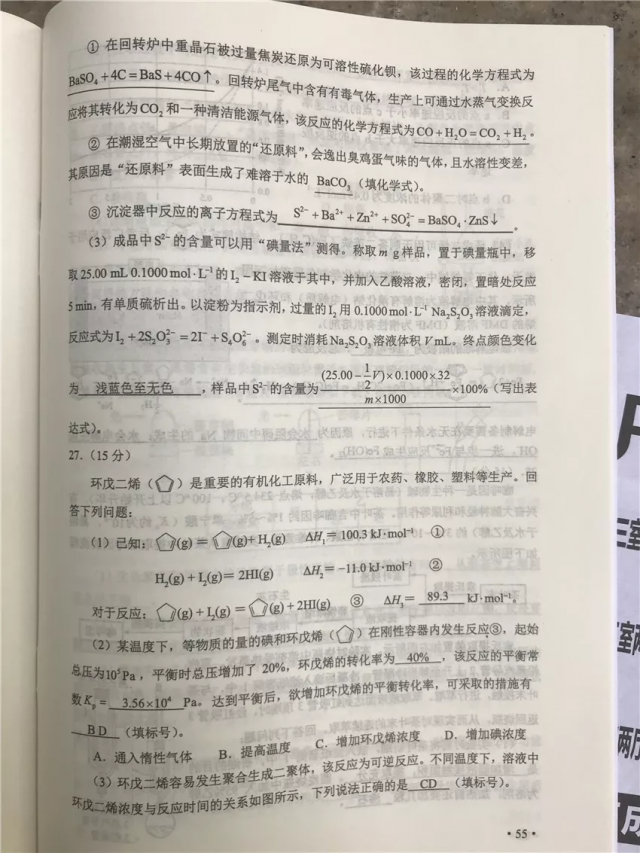 ① 在回转炉中重晶石被过量焦炭还原为可溶性硫化钡，该过程的化学方程式为
BaSO₄ + 4C = BaS + 4CO↑。回转炉尾气中含有有毒气体，生产上可通过水蒸气变换反
应将其转化为CO₂和一种清洁能源气体，该反应的化学方程式为CO + H₂O = CO₂ + H₂。
② 在潮湿空气中长期放置的“还原料”，会逸出臭鸡蛋气味的气体，且水溶性变差，
其原因是“还原料”表面生成了难溶于水的 BaCO₃（填化学式）。
③ 沉淀器中反应的离子方程式为 S²⁻ + Ba²⁺ + Zn²⁺ + SO₄²⁻ = BaSO₄·ZnS↓。
（3）成品中S²⁻的含量可以用“碘量法”测得。称取m g样品，置于碘量瓶中，移
取25.00 mL 0.1000 mol·L⁻¹的I₂－KI溶液于其中，并加入乙酸溶液，密闭，置暗处反应
5 min，有单质硫析出。以淀粉为指示剂，过量的I₂用0.1000 mol·L⁻¹ Na₂S₂O₃溶液滴定，
反应式为I₂ + 2S₂O₃²⁻ = 2I⁻ + S₄O₆²⁻。测定时消耗Na₂S₂O₃溶液体积V mL。终点颜色变化
为 浅蓝色至无色 ，样品中S²⁻的含量为 (25.00 - 1/2 V)×0.1000×32 / m×1000 ×100%（写出表
达式）。
27.（15分）
环戊二烯（）是重要的有机化工原料，广泛用于农药、橡胶、塑料等生产。回
答下列问题：
（1）已知：(g) = (g)+ H₂(g) ΔH₁= 100.3 kJ·mol⁻¹ ①
H₂(g) + I₂(g)= 2HI(g) ΔH₂= -11.0 kJ·mol⁻¹ ②
对于反应：(g) + I₂(g) = (g) + 2HI(g) ③ ΔH₃= 89.3 kJ·mol⁻¹。
（2）某温度下，等物质的量的碘和环戊烯（）在刚性容器内发生反应③，起始
总压为10⁵Pa，平衡时总压增加了20%，环戊烯的转化率为 40% ，该反应的平衡常
数Kₚ = 3.56×10⁴ Pa。达到平衡后，欲增加环戊烯的平衡转化率，可采取的措施有
BD（填标号）。
A．通入惰性气体 B．提高温度 C．增加环戊烯浓度 D．增加碘浓度
（3）环戊二烯容易发生聚合生成二聚体，该反应为可逆反应。不同温度下，溶液中
环戊二烯浓度与反应时间的关系如图所示，下列说法正确的是 CD （填标号）。
·55·
室
室两
两厅
成